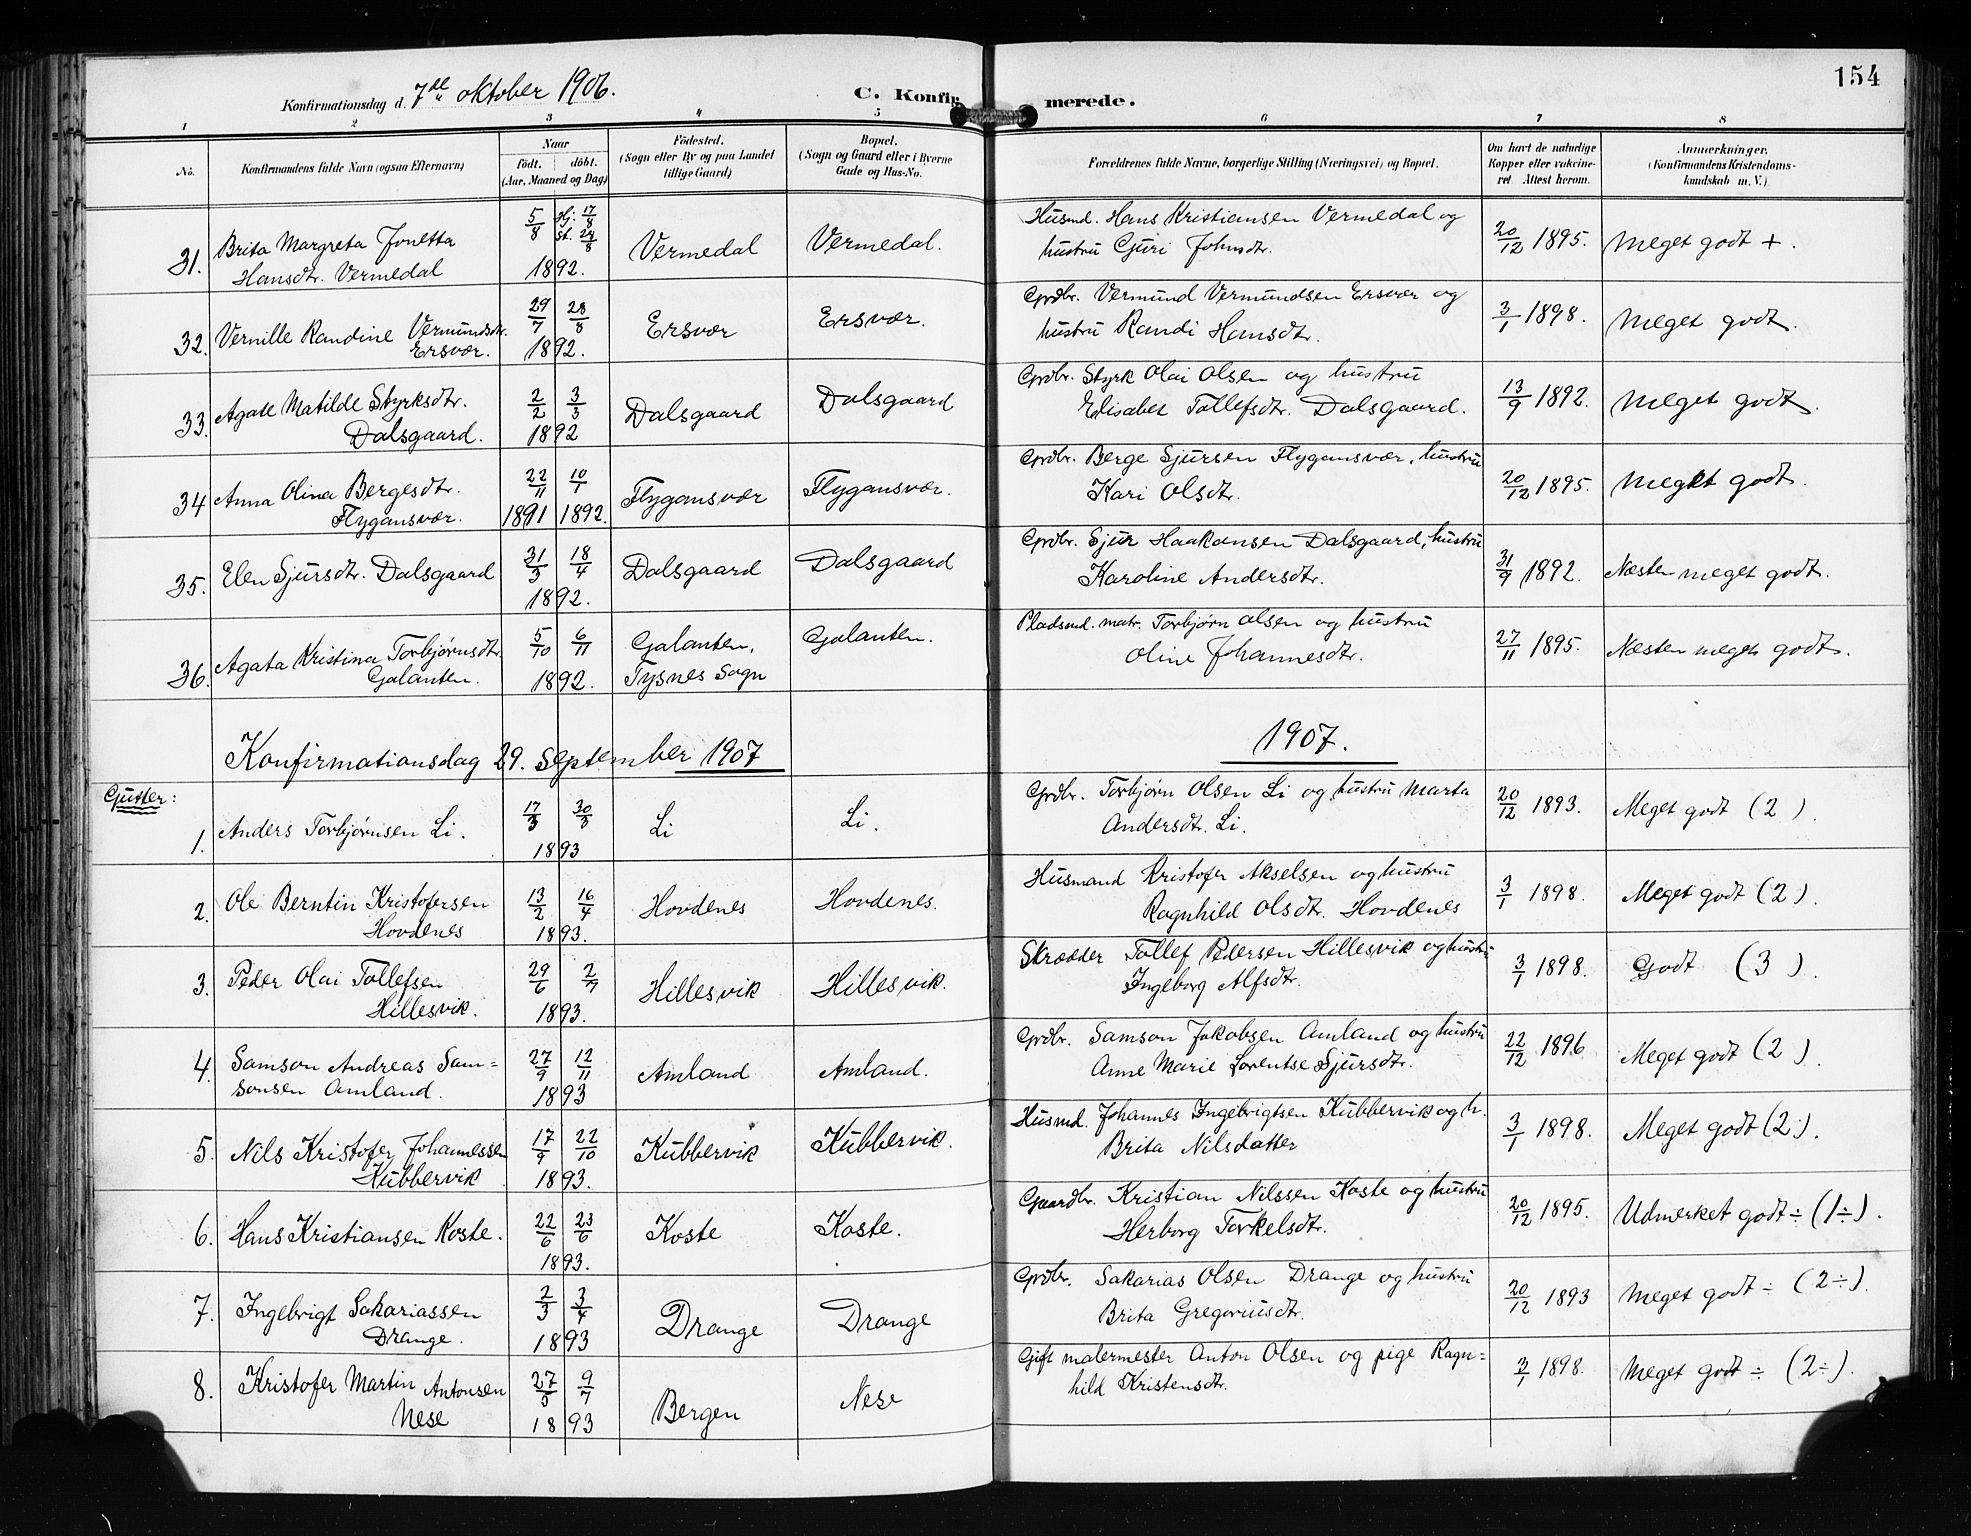 154
Konfirmationsdag d. 7de oktober 1906.
C. Konfirmerede.
1 2 3 4 5 6 7 8
No.
Konfirmandens fulde Navn (ogsaa Efternavn)
Naar
født. døbt.
(Aar, Maaned og Dag)
Fødested.
(Sogn eller By og paa Landet
tillige Gaard)
Bopæl.
(Sogn og Gaard eller i Byerne
Gade og Hus-No.
Forældrenes fulde Navne, borgerlige Stilling (Næringsvei) og Bopæl.
Om havt de naturlige
Kopper eller vaccine-
ret. Attest herom.
Anmerkninger.
(Konfirmandens Kristendoms-
kundskab m. V.)
31. Brita Margreta Jonetta
Hansdtr. Vermedal
5/8 Hj. 17/8 St. 28/8 1892.
Vermedal
Vermedal.
Husmd. Hans Kristiansen Vermedal og
hustru Guri Johnsdtr.
20/12 1895.
Meget godt +.
32. Vernille Randine Vermundsdtr.
Ersvær.
29/7 28/8 1892.
Ersvær
Ersvær.
Grdbr. Vermund Vermundsen Ersvær og
hustru Randi Hansdtr.
3/1 1898.
Meget godt.
33. Agate Matilde Styrksdtr.
Dalsgaard.
2/2 3/3 1892
Dalsgaard
Dalsgaard
Grdbr. Styrk Olai Olsen og hustru
Elisabet Tollefsdtr. Dalsgaard.
13/9 1892.
Meget godt.
34 Anna Olina Bergesdtr.
Flygansvær.
22/11 1891 10/1 1892.
Flygansvær
Flygansvær.
Grdbr. Berge Sjursen Flygansvær, hustru
Kari Olsdtr.
20/12 1895.
Meget godt.
35. Elen Sjursdtr. Dalsgaard
31/3 18/4 1892.
Dalsgaard
Dalsgaard
Grdbr. Sjur Haakonsen Dalsgaard, hustru
Karoline Andersdtr.
31/9 1892.
Næsten meget godt.
36. Agata Kristina Torbjørnsdtr.
Galanten.
5/10 6/11 1892.
Galanten,
Tysnes Sogn
Galanten.
Pladsmd. matr. Torbjørn Olsen og hustru
Oline Johannesdtr.
27/11 1895.
Næsten meget godt.
Konfirmationsdag 29. September 1907
1907.
Gutter:
1. Anders Torbjørnsen Li.
17/3 30/3 1893
Li
Li.
Grdbr. Torbjørn Olsen Li og hustru Marta
Andersdt. Li.
20/12 1893.
Meget godt (2).
2. Ole Berntin Kristofersen
Hovdenes
13/2 16/4 1893.
Hovdenes
Hovdenes.
Husmand Kristofer Akselsen og hustru
Ragnhild Olsdtr. Hovdenes
3/1 1898.
Meget godt (2).
3. Peder Olai Tollefsen
Hillesvik.
29/6 2/7 1893.
Hillesvik
Hillesvik.
Skrædder Tollef Pedersen Hillesvik og hustru
Ingeborg Alfsdtr.
3/1 1898.
Godt (3).
4. Samson Andreas Sam=
sonsen Amland.
27/9 12/11 1893
Amland
Amland.
Grdbr. Samson Jakobsen Amland og hustru
Anne Marie Lorentse Sjursdtr.
22/12 1896
Meget godt (2)
5. Nils Kristofer Johannessen
Kubbervik
17/9 22/10 1893.
Kubbervik
Kubbervik.
Husmd. Johannes Ingebrigtsen Kubbervik og h.
Brita Nilsdatter
3/1 1898.
Meget godt (2).
6. Hans Kristiansen Koste.
22/6 23/6 1893.
Koste
Koste.
Gaardbr. Kristian Nilssen Koste og hustru
Herborg Torkelsdtr.
20/12 1895.
Udmerket godt ÷ (1÷).
7. Ingebrigt Sakariassen
Drange.
2/3 3/4 1893
Drange
Drange
Grdbr. Sakarias Olsen Drange og hustru
Brita Gregoriusdtr.
20/12 1893
Meget godt ÷ (2÷).
8. Kristofer Martin Antonsen
Nese
27/5 9/7 1893
Bergen
Nese
Gift malermester Anton Olsen og pige Ragn=
hild Kristensdtr.
3/1 1898.
Meget godt ÷ (2÷).